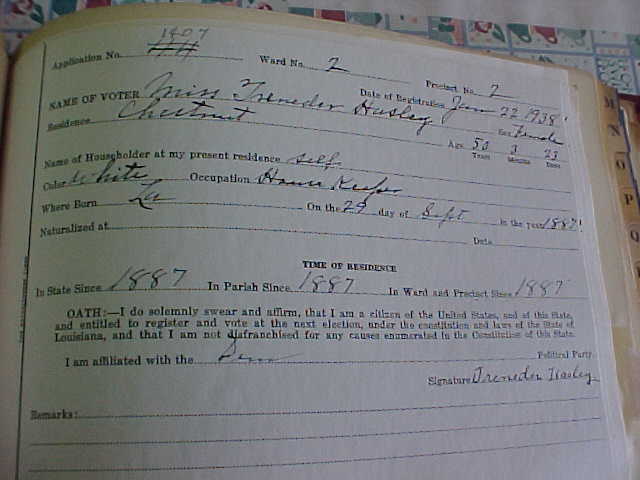 1407
Application No. Ward No. 2 Precinct No. 2
NAME OF VOTER Miss Treneder Hasley Date of Registration Jan 22 1938
Residence Chestnut Sex Female
Age 50 Years 3 Months 23 Days
Name of Householder at my present residence self
Color White Occupation House Keeper
Where Born La On the 29 day of Sept in the year 1887
Naturalized at Date
TIME OF RESIDENCE
In State Since 1887 In Parish Since 1887 In Ward and Precinct Since 1887
OATH:—I do solemnly swear and affirm, that I am a citizen of the United States, and of this State,
and entitled to register and vote at the next election, under the constitution and laws of the State of
Louisiana, and that I am not disfranchised for any causes enumerated in the Constitution of this State.
I am affiliated with the Dem Political Party
Signature Treneder Hasley
Remarks:
M
N
O
P
Q